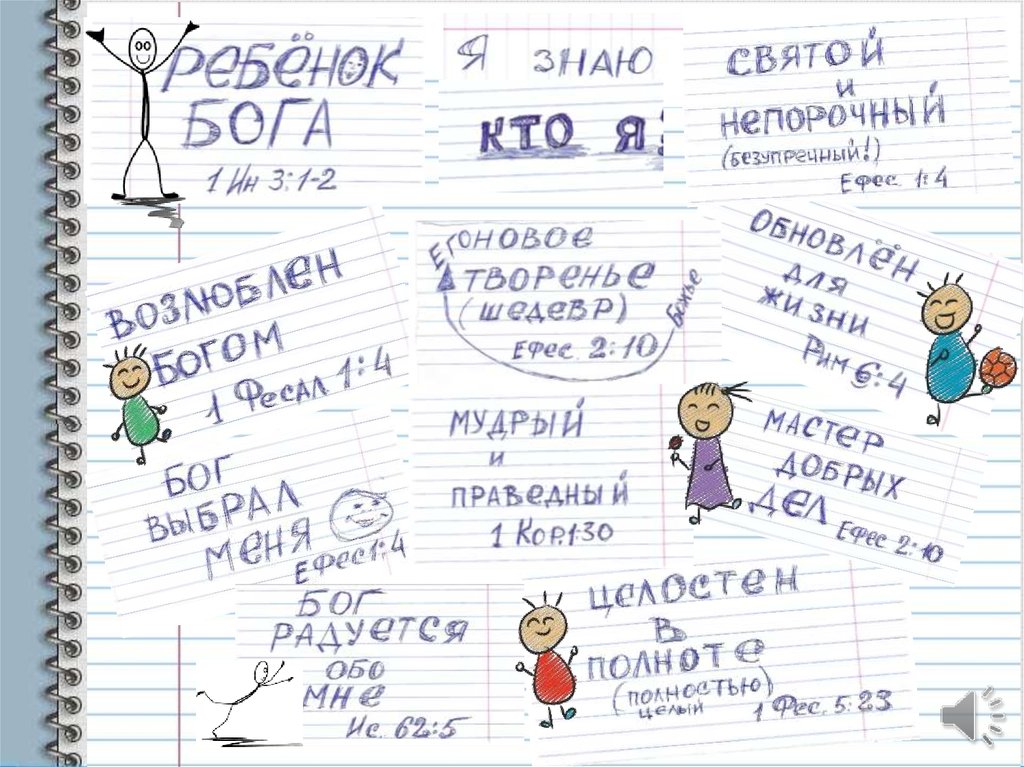 РЕБЁНОК
БОГА
1 Ин 3:1-2
Я ЗНАЮ
КТО Я!
СВЯТОЙ
и
НЕПОРОЧНЫЙ
(безупречный!)
Ефес. 1:4
ВОЗЛЮБЛЕН
БОГОМ
1 Фесал 1:4
ЕГО НОВОЕ
ТВОРЕНЬЕ
(ШЕДЕВР) Божье
Ефес. 2:10
ОБНОВЛЁН
ДЛЯ
ЖИЗНИ
Рим 6:4
БОГ
ВЫБРАЛ
МЕНЯ
Ефес 1:4
МУДРЫЙ
и
ПРАВЕДНЫЙ
1 Кор.1:30
МАСТЕР
ДОБРЫХ
ДЕЛ
Ефес 2:10
БОГ
РАДУЕТСЯ
ОБО
МНЕ
Ис. 62:5
ЦЕЛОСТЕН
В
ПОЛНОТЕ
(полностью)
целый
1 Фес. 5:23